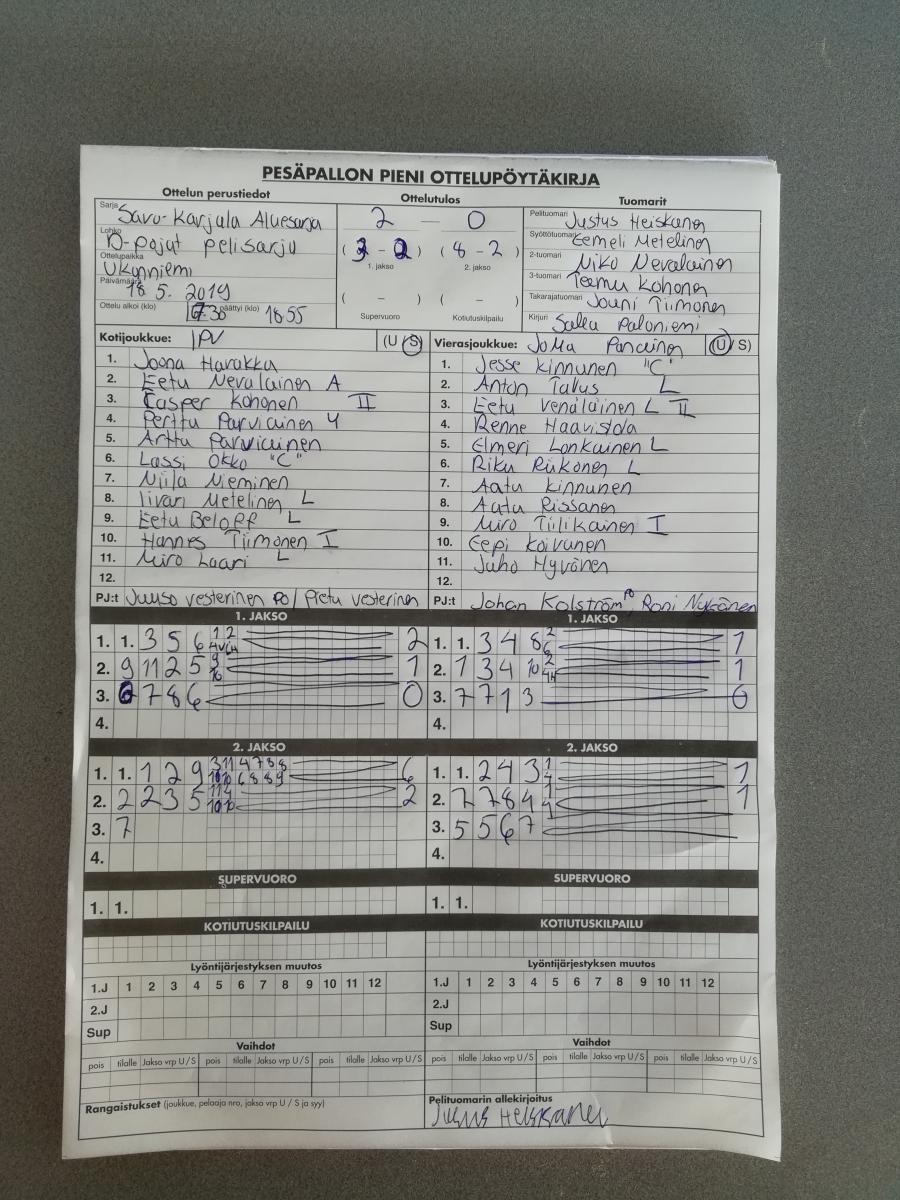 PESÄPALLON PIENI OTTELUPÖYTÄKIRJA
Ottelun perustiedot Ottelutulos Tuomarit
Sarja Savo-Karjala Aluesarja
Lohko D-pojat pelisarja
Ottelupaikka Ukonniemi
Päivämäärä 18.5. 2019
Ottelu alkoi (klo) 17.30 päättyi (klo) 18.55
2 — 0
( 3 - 2 ) ( 8 - 2 )
1. jakso 2. jakso
( - ) ( - )
Supervuoro Kotiutuskilpailu
Pelituomari Justus Heiskanen
Syöttötuomari Eemeli Metelinen
2-tuomari Niko Nevalainen
3-tuomari Teemu Kohonen
Takarajatuomari Jouni Tiimonen
Kirjuri Salla Paloniemi
Kotijoukkue: IPV (U / S)
1. Joona Harakka
2. Eetu Nevalainen A
3. Casper Kohonen II
4. Perttu Parviainen Y
5. Arttu Parviainen
6. Lassi Okko "C"
7. Niila Nieminen
8. Iivari Metelinen L
9. Eetu Beloff L
10. Hannes Tiimonen I
11. Miro Laari L
12.
PJ:t Juuso Vesterinen PO / Pretu Vesterinen
Vierasjoukkue: JoMa Punainen (U / S)
1. Jesse Kinnunen "C"
2. Anton Talus L
3. Eetu Venäläinen L II
4. Renne Haavisto
5. Elmeri Lonkainen L
6. Riku Riikonen L
7. Aatu Kinnunen
8. Aatu Rissanen
9. Miro Tiilikainen I
10. Eepi Koivunen
11. Juho Hyvönen
12.
PJ:t Johan Kolström PO, Roni Nykänen
1. JAKSO 1. JAKSO
1. 1. 3 5 6 2
2. 9 11 2 5 1
3. 6 7 8 6 0
4.
1. 1. 3 4 8 1
2. 1 3 4 10 1
3. 7 7 1 3 0
4.
2. JAKSO 2. JAKSO
1. 1. 1 2 9 6
2. 2 2 3 5 2
3. 7
4.
1. 1. 2 4 3 1
2. 7 7 8 4 1
3. 5 5 6 7
4.
SUPERVUORO SUPERVUORO
1. 1. 1. 1.
KOTIUTUSKILPAILU KOTIUTUSKILPAILU
Lyöntijärjestyksen muutos Lyöntijärjestyksen muutos
1.J 1 2 3 4 5 6 7 8 9 10 11 12 1.J 1 2 3 4 5 6 7 8 9 10 11 12
2.J 2.J
Sup Sup
Vaihdot Vaihdot
pois tilalle Jakso vrp U/S pois tilalle Jakso vrp U/S pois tilalle Jakso vrp U/S pois tilalle Jakso vrp U/S pois tilalle Jakso vrp U/S pois tilalle Jakso vrp U/S
Rangaistukset (joukkue, pelaaja nro, jakso vrp U / S ja syy)
Pelituomarin allekirjoitus
Justus Heiskanen